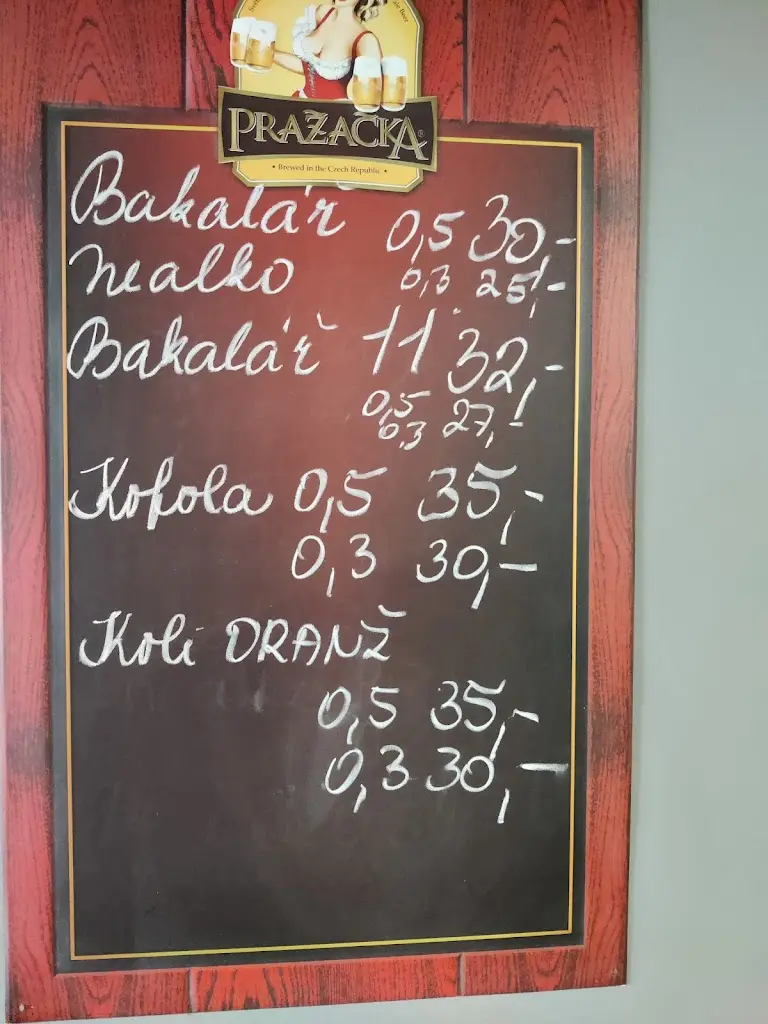 PRAŽAČKA®
• Brewed in the Czech Republic •
Bakalář 0,5 30,-
Nealko 0,3 25,-
Bakalář 11 32,-
0,5
0,3 27,-
Kofola 0,5 35,-
0,3 30,-
Koli ORANŽ
0,5 35,-
0,3 30,-